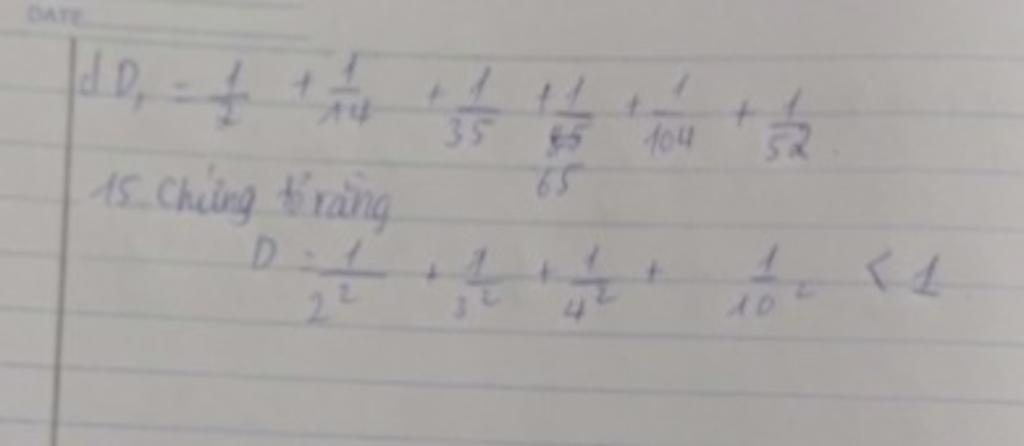 DATE
d D, = 1/2 + 1/14 + 1/35 + 1/65 + 1/104 + 1/52
15. Chứng tỏ rằng
D = 1/2² + 1/3² + 1/4² + 1/10² < 1